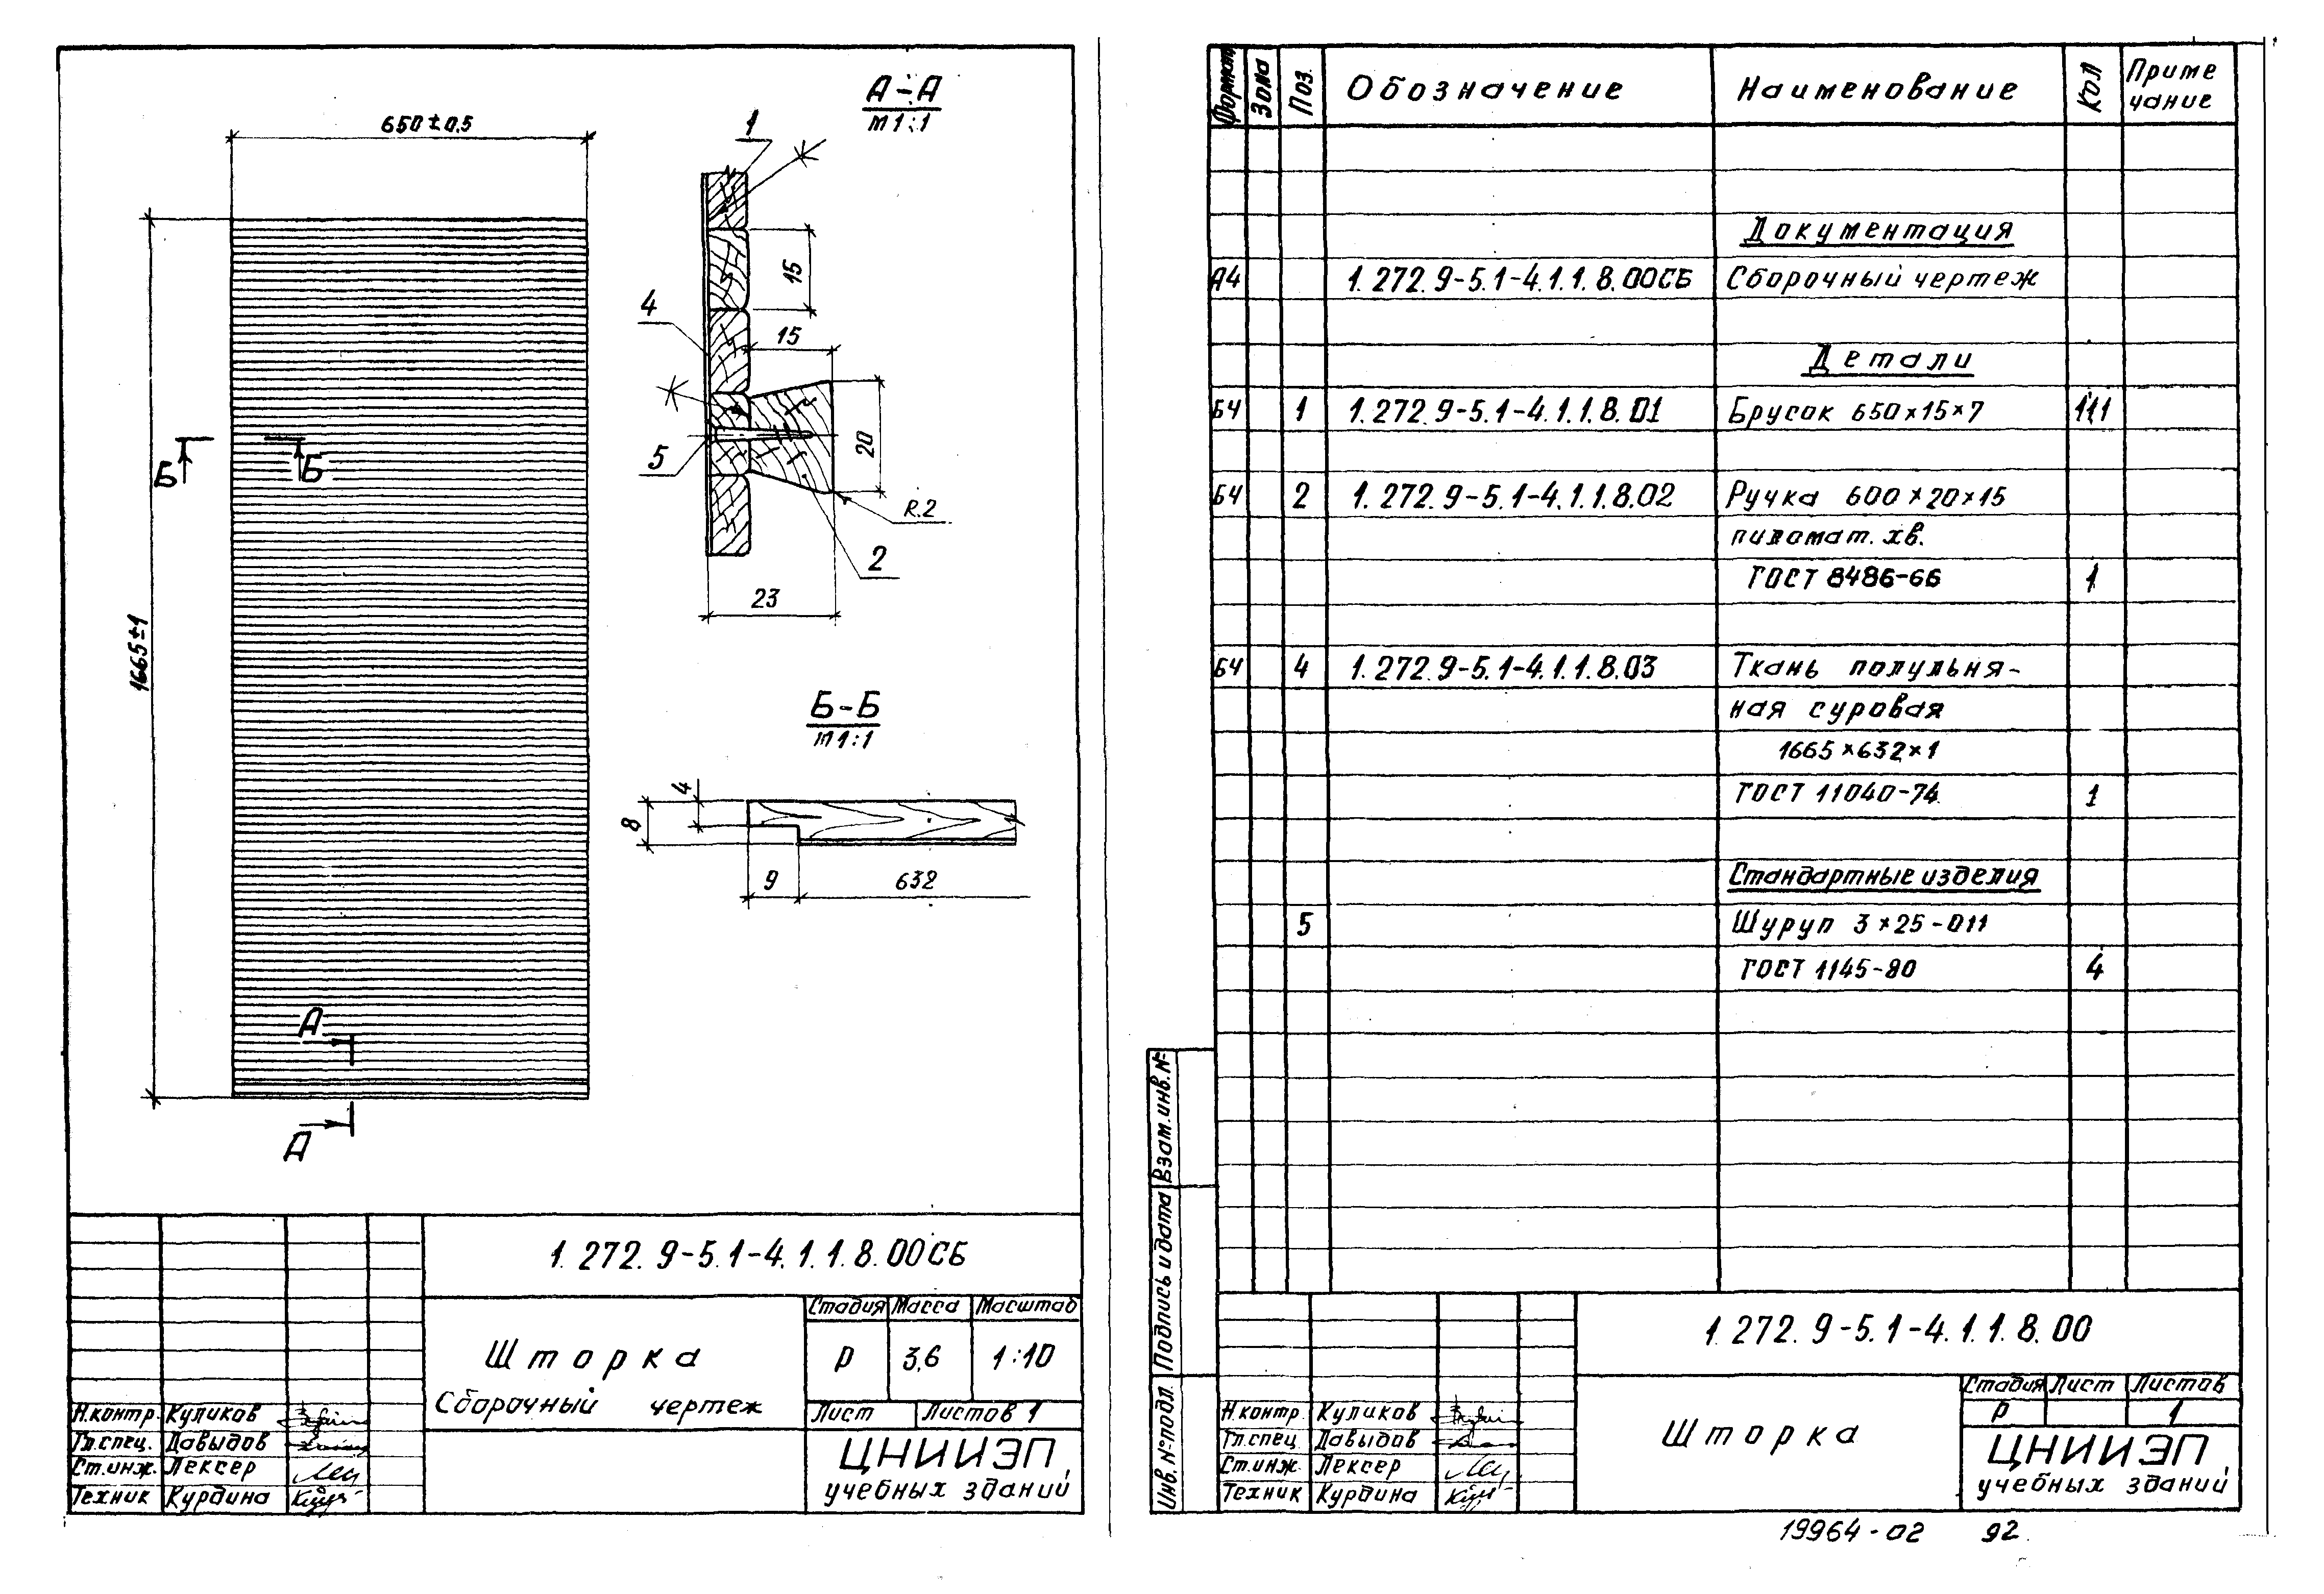 650±0.5
1665±1
Б
Б
А
А
А-А
м1:1
1
4
5
15
15
20
R.2
2
23
Б-Б
м1:1
4
8
9
632
1.272.9-5.1-4.1.1.8.00СБ
Шторка
Сборочный чертеж
Стадия Масса Масштаб
Р 3,6 1:10
Лист Листов 1
Н.контр. Куликов
Гл.спец. Давыдов
Ст.инж. Лексер
Техник Курдина
ЦНИИЭП
учебных зданий
Формат Зона Поз. Обозначение Наименование Кол Приме
чание
Документация
А4 1.272.9-5.1-4.1.1.8.00СБ Сборочный чертеж
Детали
БЧ 1 1.272.9-5.1-4.1.1.8.01 Брусок 650×15×7 111
БЧ 2 1.272.9-5.1-4.1.1.8.02 Ручка 600×20×15
пиломат. хв.
ГОСТ 8486-66 1
БЧ 4 1.272.9-5.1-4.1.1.8.03 Ткань полульня-
ная суровая
1665×632×1
ГОСТ 11040-74 1
Стандартные изделия
5 Шуруп 3×25-011
ГОСТ 1145-80 4
Взам.инв.№
Подпись и дата
Инв.№подл.
1.272.9-5.1-4.1.1.8.00
Шторка
Стадия Лист Листов
Р 1
Н.контр. Куликов
Гл.спец. Давыдов
Ст.инж. Лексер
Техник Курдина
ЦНИИЭП
учебных зданий
19964-02 92